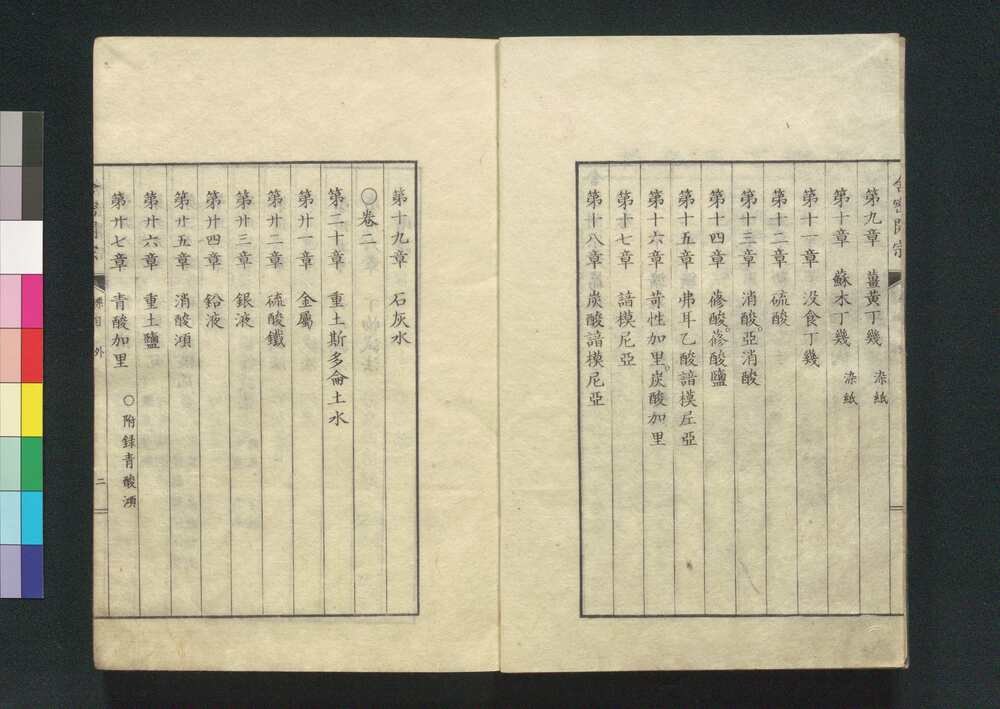 第九章　薑黄丁幾　染紙
第十章　蘇木丁幾　染紙
第十一章　没食丁幾
第十二章　硫酸
第十三章　消酸。亞消酸
第十四章　蓚酸。蓚酸鹽
第十五章　弗耳乙酸諳模尼亞
第十六章　苛性加里。炭酸加里
第十七章　諳模尼亞
第十八章　炭酸諳模尼亞
第十九章　石灰水
○卷二
第二十章　重土斯多侖土水
第廿一章　金屬
第廿二章　硫酸鐵
第廿三章　銀液
第廿四章　鉛液
第廿五章　消酸澒
第廿六章　重土鹽
第廿七章　青酸加里　○附録青酸澒
外　二